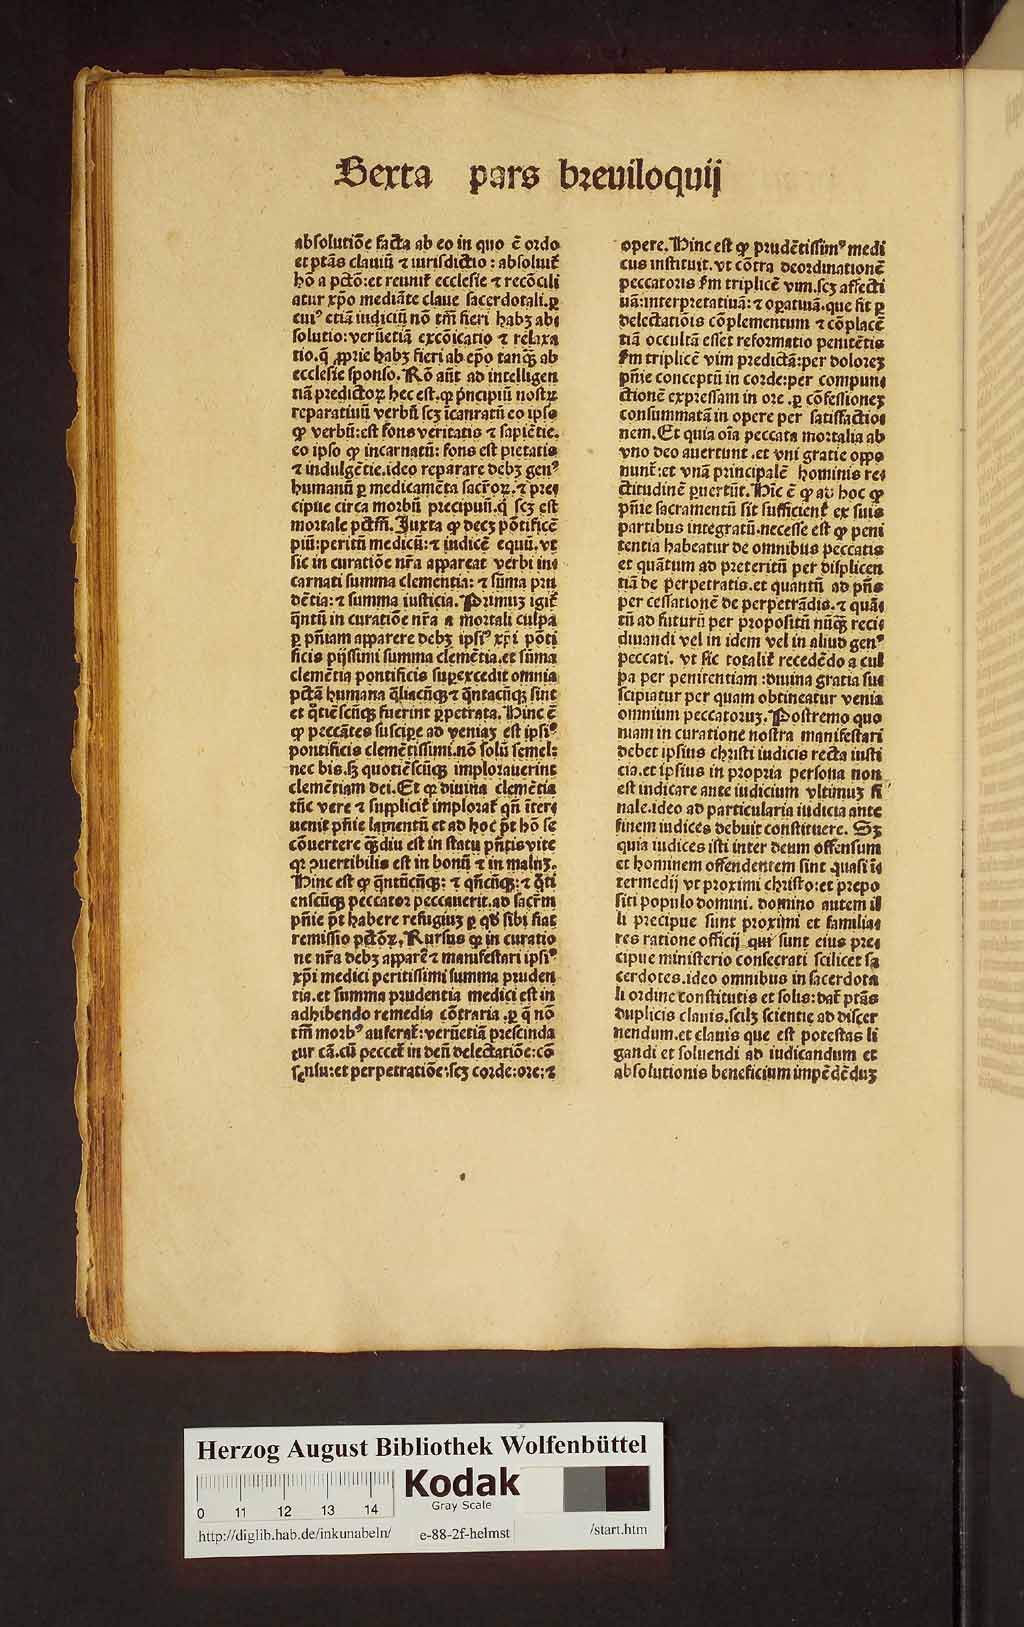 Sexta pars breuiloquij
absolutiõe facta ab eo in quo ẽ ordo
et ptãs clauiũ ⁊ iurisdictio : absoluit̃
hõ a pctõ:et reunit̃ ecclesie ⁊ recõcili
atur xp̃o mediãte claue sacerdotali.ꝑ
cuiꝰ etiã iudiciũ nõ tm̃ fieri habꝫ ab⸗
solutio:verũetiã excõicatio ⁊ relaxa
tio.q̃ ꝓprie habꝫ fieri ab ep̃o tanq̃ꝫ ab
ecclesie sponso. Rõ aũt ad intelligen
tiã predictoꝝ hec est.ꝙ pͥncipiũ nostꝝ
reparatiuũ verbũ scꝫ ĩcarnatũ eo ipso
ꝙ verbũ:est fons veritatis ⁊ sapiẽtie.
eo ipso ꝙ incarnatũ: fons est pietatis
⁊ indulgẽtie.ideo reparare debꝫ genꝰ
humanũ ꝑ medicamẽta sacr̃oꝝ.⁊ pre⸗
cipue circa morbũ precipuũ.qͥ scꝫ est
mortale pctm̃. Juxta ꝙ decꝫ põtificẽ
piũ:peritũ medicũ:⁊ iudicẽ equũ.vt
sic in curatiõe nr̃a appareat verbi in⸗
carnati summa clementia: ⁊ sũma pru
dẽtia:⁊ summa iusticia. Primuꝫ igit̃
q̃ntũ in curatiõe nr̃a a mortali culpa
ꝑ pñiam apparere debꝫ ipsiꝰ xp̃i põti
ficis pijssimi summa clemẽtia.et sũma
clemẽtia pontificis suꝑexcedit omnia
pctã humana q̃liacũqꝫ ⁊ q̃ntacũqꝫ sint
et q̃tiẽscũqꝫ fuerint ꝑpetrata. Hinc ẽ
ꝙ peccãtes suscipe ad veniaꝫ est ipsiꝰ
pontificis clemẽtissimi.nõ solũ semel:
nec bis.sꝫ quotiẽscũqꝫ implorauerint
clemẽtiam dei. Et ꝙ diuina clemẽtia
tũc vere ⁊ supplicit̃ implorat̃ qñ ĩter⸗
uenit pñie lamentũ et ad hoc p̃t hõ se
cõuertere q̃ꝫdiu est in statu pñtis vite
qꝛ ↄuertibilis est in bonũ ⁊ in maluꝫ.
Hinc est ꝙ q̃ntũcũqꝫ: ⁊ qñcũqꝫ:⁊ q̃ti
enscũqꝫ peccator peccauerit.ad sacr̃m
pñie p̃t habere refugiuꝫ ꝑ qđ sibi fiat
remissio pctõꝝ. Rursus ꝙ in curatio
ne nr̃a debꝫ apparẽ ⁊ manifestari ipsiꝰ
xp̃i medici peritissimi summa pruden
tia.et summa prudentia medici est in
adhibendo remedia cõtraria .ꝑ q̃ nõ
tm̃ morbꝰ auferat̃:verũetiã prescinda
tur cã.cũ peccet̃ in deũ delectatiõe:cõ
sensu:et perpetratiõe:scꝫ corde:ore:⁊
opere. Hinc est ꝙ prudẽtissimꝰ medi
cus instituit.vt cõtra deordinationẽ
peccatoris fm̃ triplicẽ vim.scꝫ affecti
uã:interpretatiuã:⁊ oꝑatiuã.que fit ꝑ
delectatiõis cõplementum ⁊ cõplacẽ
tiã occultã esset reformatio penitẽtis
fm̃ triplicẽ vim predictã:per doloreꝫ
pñie conceptũ in corde:per compun⸗
ctionẽ expressam in ore .ꝑ cõfessioneꝫ
consummatã in opere per satisfactio⸗
nem. Et quia oĩa peccata mortalia ab
vno deo auertunt .et vni gratie oppo
nunt̃:et vnã principalẽ hominis re⸗
ctitudinẽ ꝑuertũt. Hĩc ẽ ꝙ ad hoc ꝙ
pñie sacramentũ sit sufficient̃ ex suis
partibus integratũ.necesse est ꝙ peni
tentia habeatur de omnibus peccatis
et quãtum ad preteritũ per displicen
tiã de perpetratis.et quantũ ad pñs
per cessationẽ de perpetrãdis.⁊ quã⸗
tũ ad futurũ per propositũ nũq̃ꝫ reci⸗
diuandi vel in idem vel in aliud genꝰ
peccati. vt sic totalit̃ recedẽdo a cul
pa per penitentiam :diuina gratia su⸗
scipiatur per quam obtineatur venia
omnium peccatoruꝫ. Postremo quo
niam in curatione nostra manifestari
debet ipsius christi iudicis recta iusti
cia.et ipsius in propria persona non
est iudicare ante iudicium vltimuꝫ fi
nale.ideo ad particularia iudicia ante
finem iudices debuit constituere. Sꝫ
quia iudices isti inter deum offensum
et hominem offendentem sint quasi ĩ⸗
termedij vt proximi christo:et prepo
siti populo domini. domino autem il
li precipue sunt proximi et familia⸗
res ratione officij qui sunt eius pre⸗
cipue ministerio consecrati scilicet sa
cerdotes.ideo omnibus in sacerdota
li ordine constitutis et solis:dat̃ ptãs
duplicis clauis.scilꝫ scientie ad discer
nendum.et clauis que est potestas li
gandi et soluendi ad iudicandum et
absolutionis beneficium impẽdẽduꝫ
Herzog August Bibliothek Wolfenbüttel
Kodak
Gray Scale
0 11 12 13 14
http://diglib.hab.de/inkunabeln/ e-88-2f-helmst /start.htm